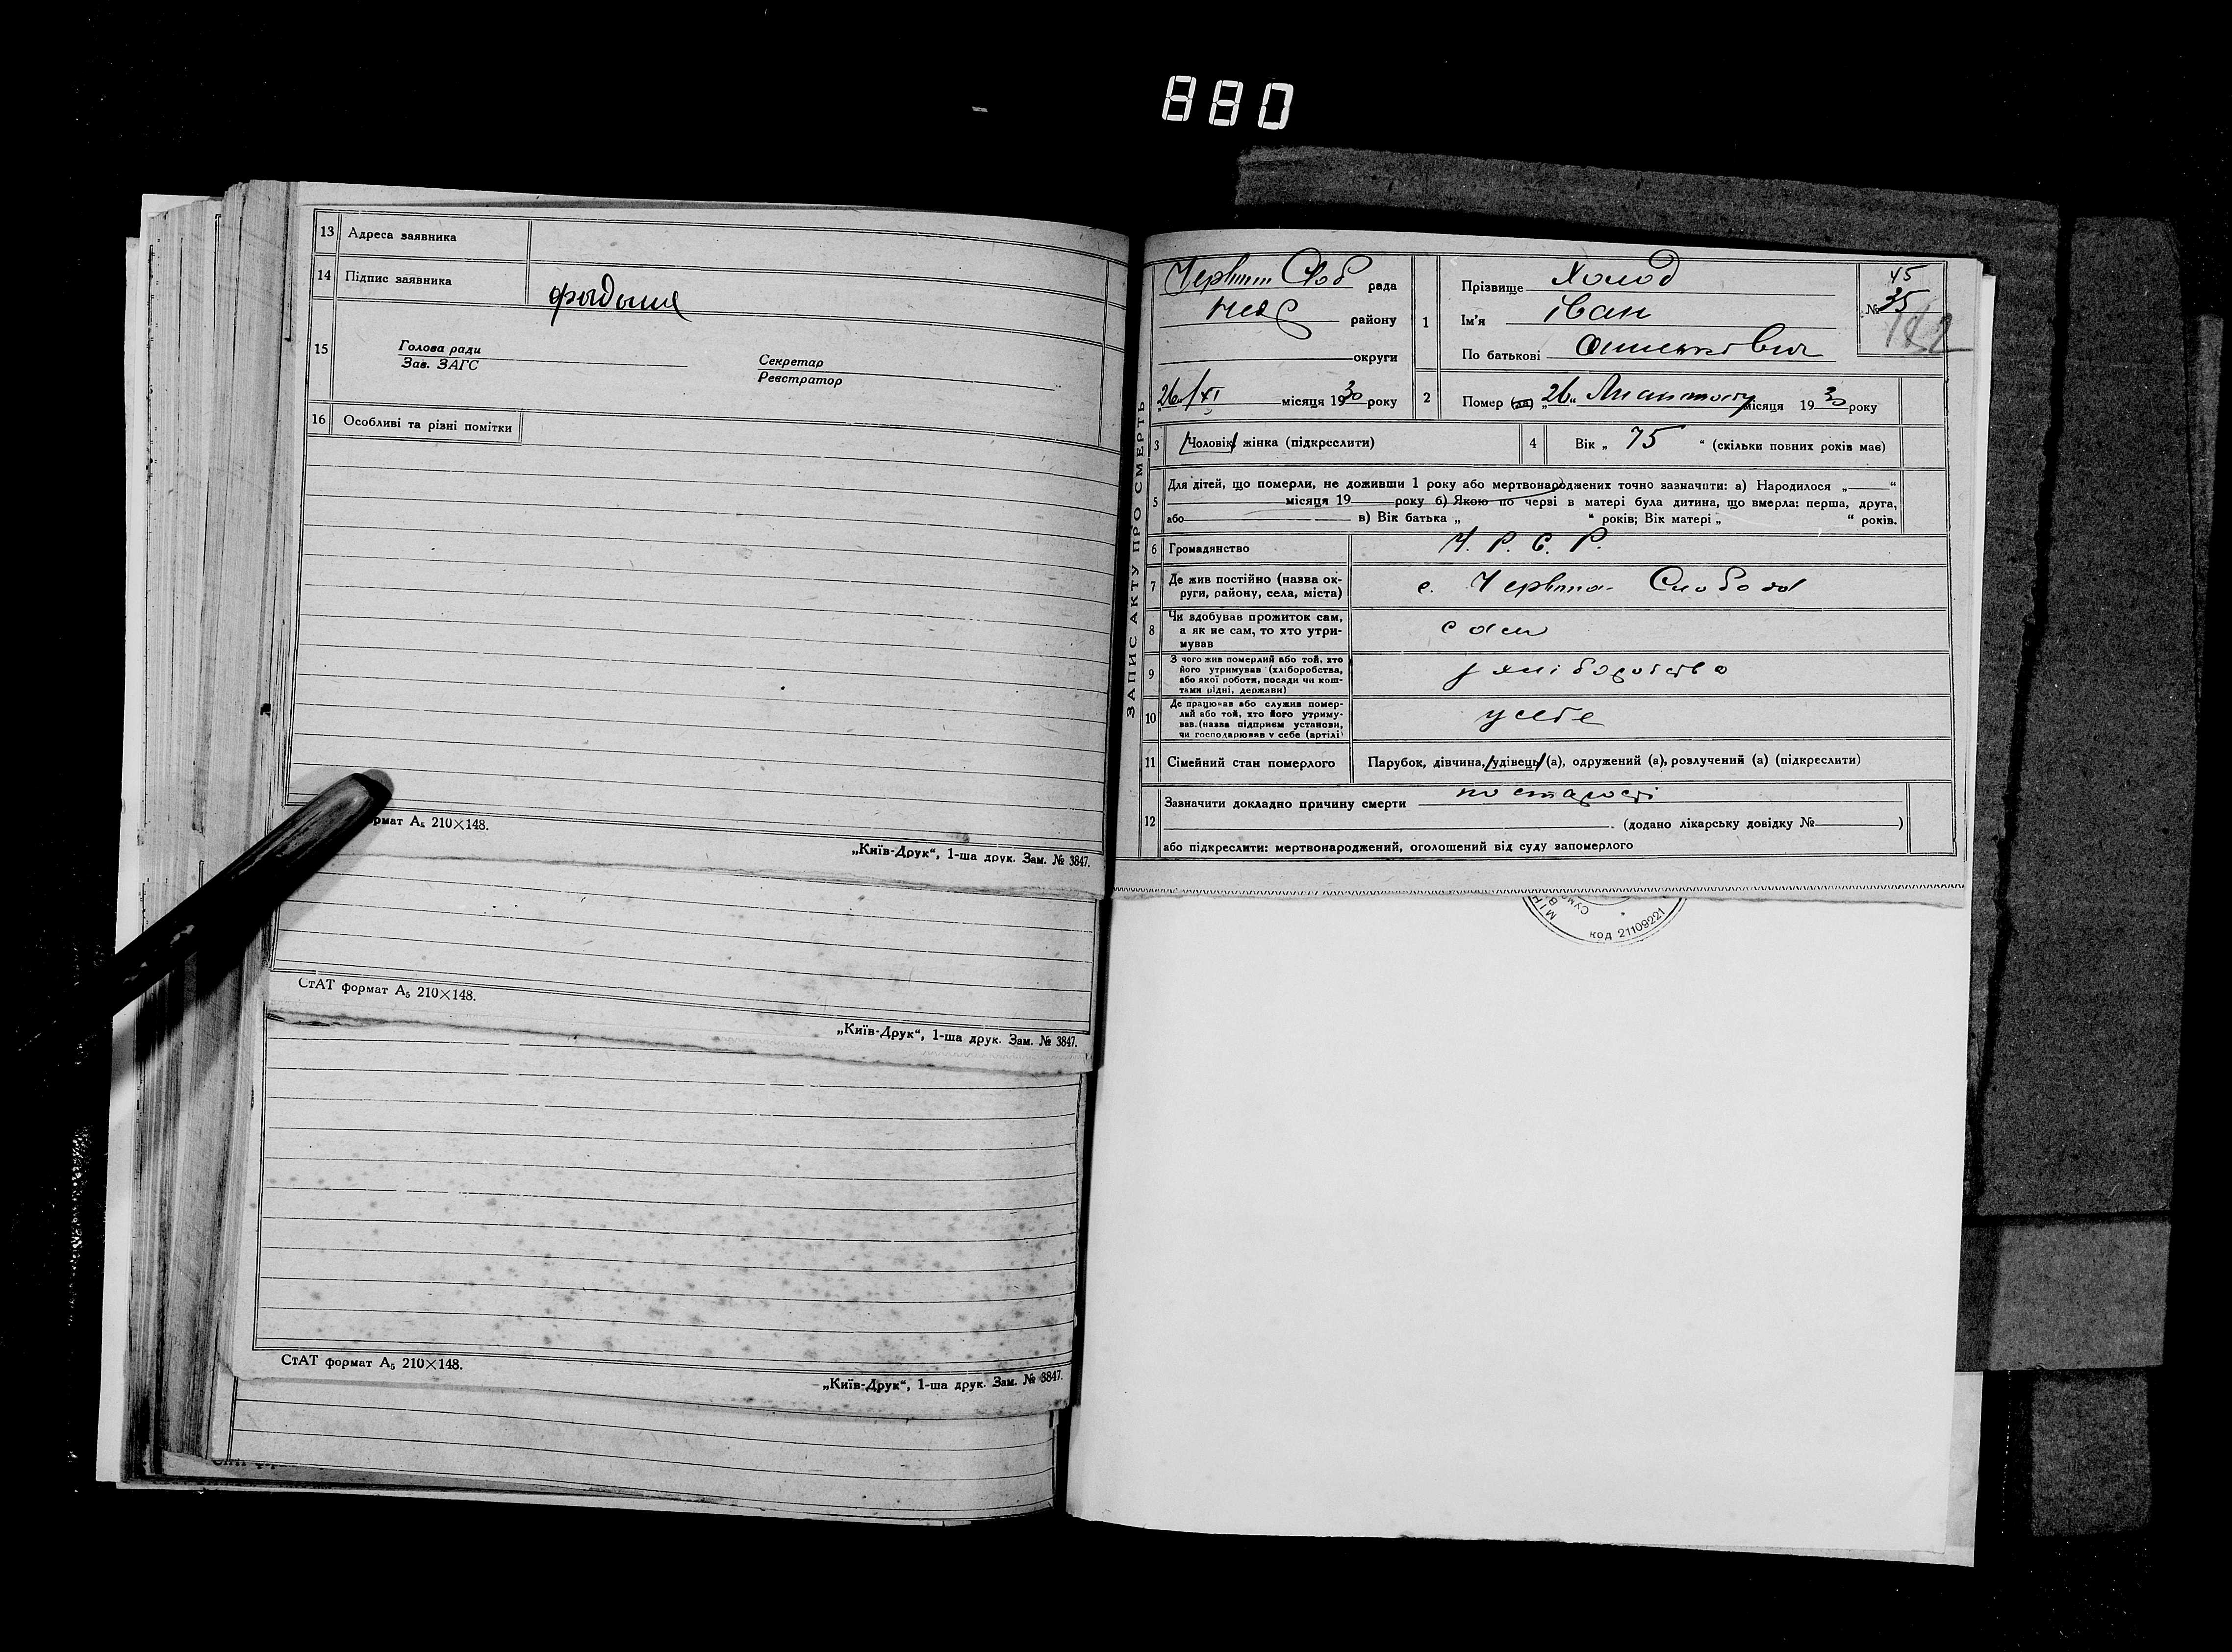 880
13 Адреса заявника
14 Підпис заявника
15 Голова ради
Зав. ЗАГС
Секретар
Реєстратор
16 Особливі та різні помітки
рмат А5 210×148.
„Київ-Друк“, 1-ша друк. Зам. № 3847.
СтАТ формат А5 210×148.
„Київ-Друк“, 1-ша друк. Зам. № 3847.
СтАТ формат А5 210×148.
„Київ-Друк“, 1-ша друк. Зам. № 3847.
ЗАПИС АКТУ ПРО СМЕРТЬ
Червон Слоб рада
району
округи
„26“/XI місяця 1930 року
1 Прізвище Холод
Ім'я Іван
По батькові
45
№ 35
182
2 Помер (ла) „26“ Листопаду місяця 1930 року
3 Чоловік жінка (підкреслити)
4 Вік „ 75 “ (скільки повних років має)
5 Для дітей, що померли, не доживши 1 року або мертвонароджених точно зазначити: а) Народилося „ “
місяця 19 року б) Якою по черзі в матері була дитина, що вмерла: перша, друга,
або в) Вік батька „ “ років; Вік матері „ “ років.
6 Громадянство У. Р. С. Р.
7 Де жив постійно (назва округи, району, села, міста) с. Червона Слобода
8 Чи здобував прожиток сам,
а як не сам, то хто утри-
мував
сам
9 З чого жив померлий або той, хто
його утримував (хліборобства,
або якої роботи, посади чи кош-
тами рідні, держави)
з хліборобства
10 Де працював або служив помер-
лий або той, хто його утриму-
вав. (назва підприєм установи,
чи господарював у себе (артілі)
у себе
11 Сімейний стан померлого
Парубок, дівчина, удівець (а), одружений (а), розлучений (а) (підкреслити)
12 Зазначити докладно причину смерти по старості
(додано лікарську довідку № )
або підкреслити: мертвонароджений, оголошений від суду запомерлого
код 21109221